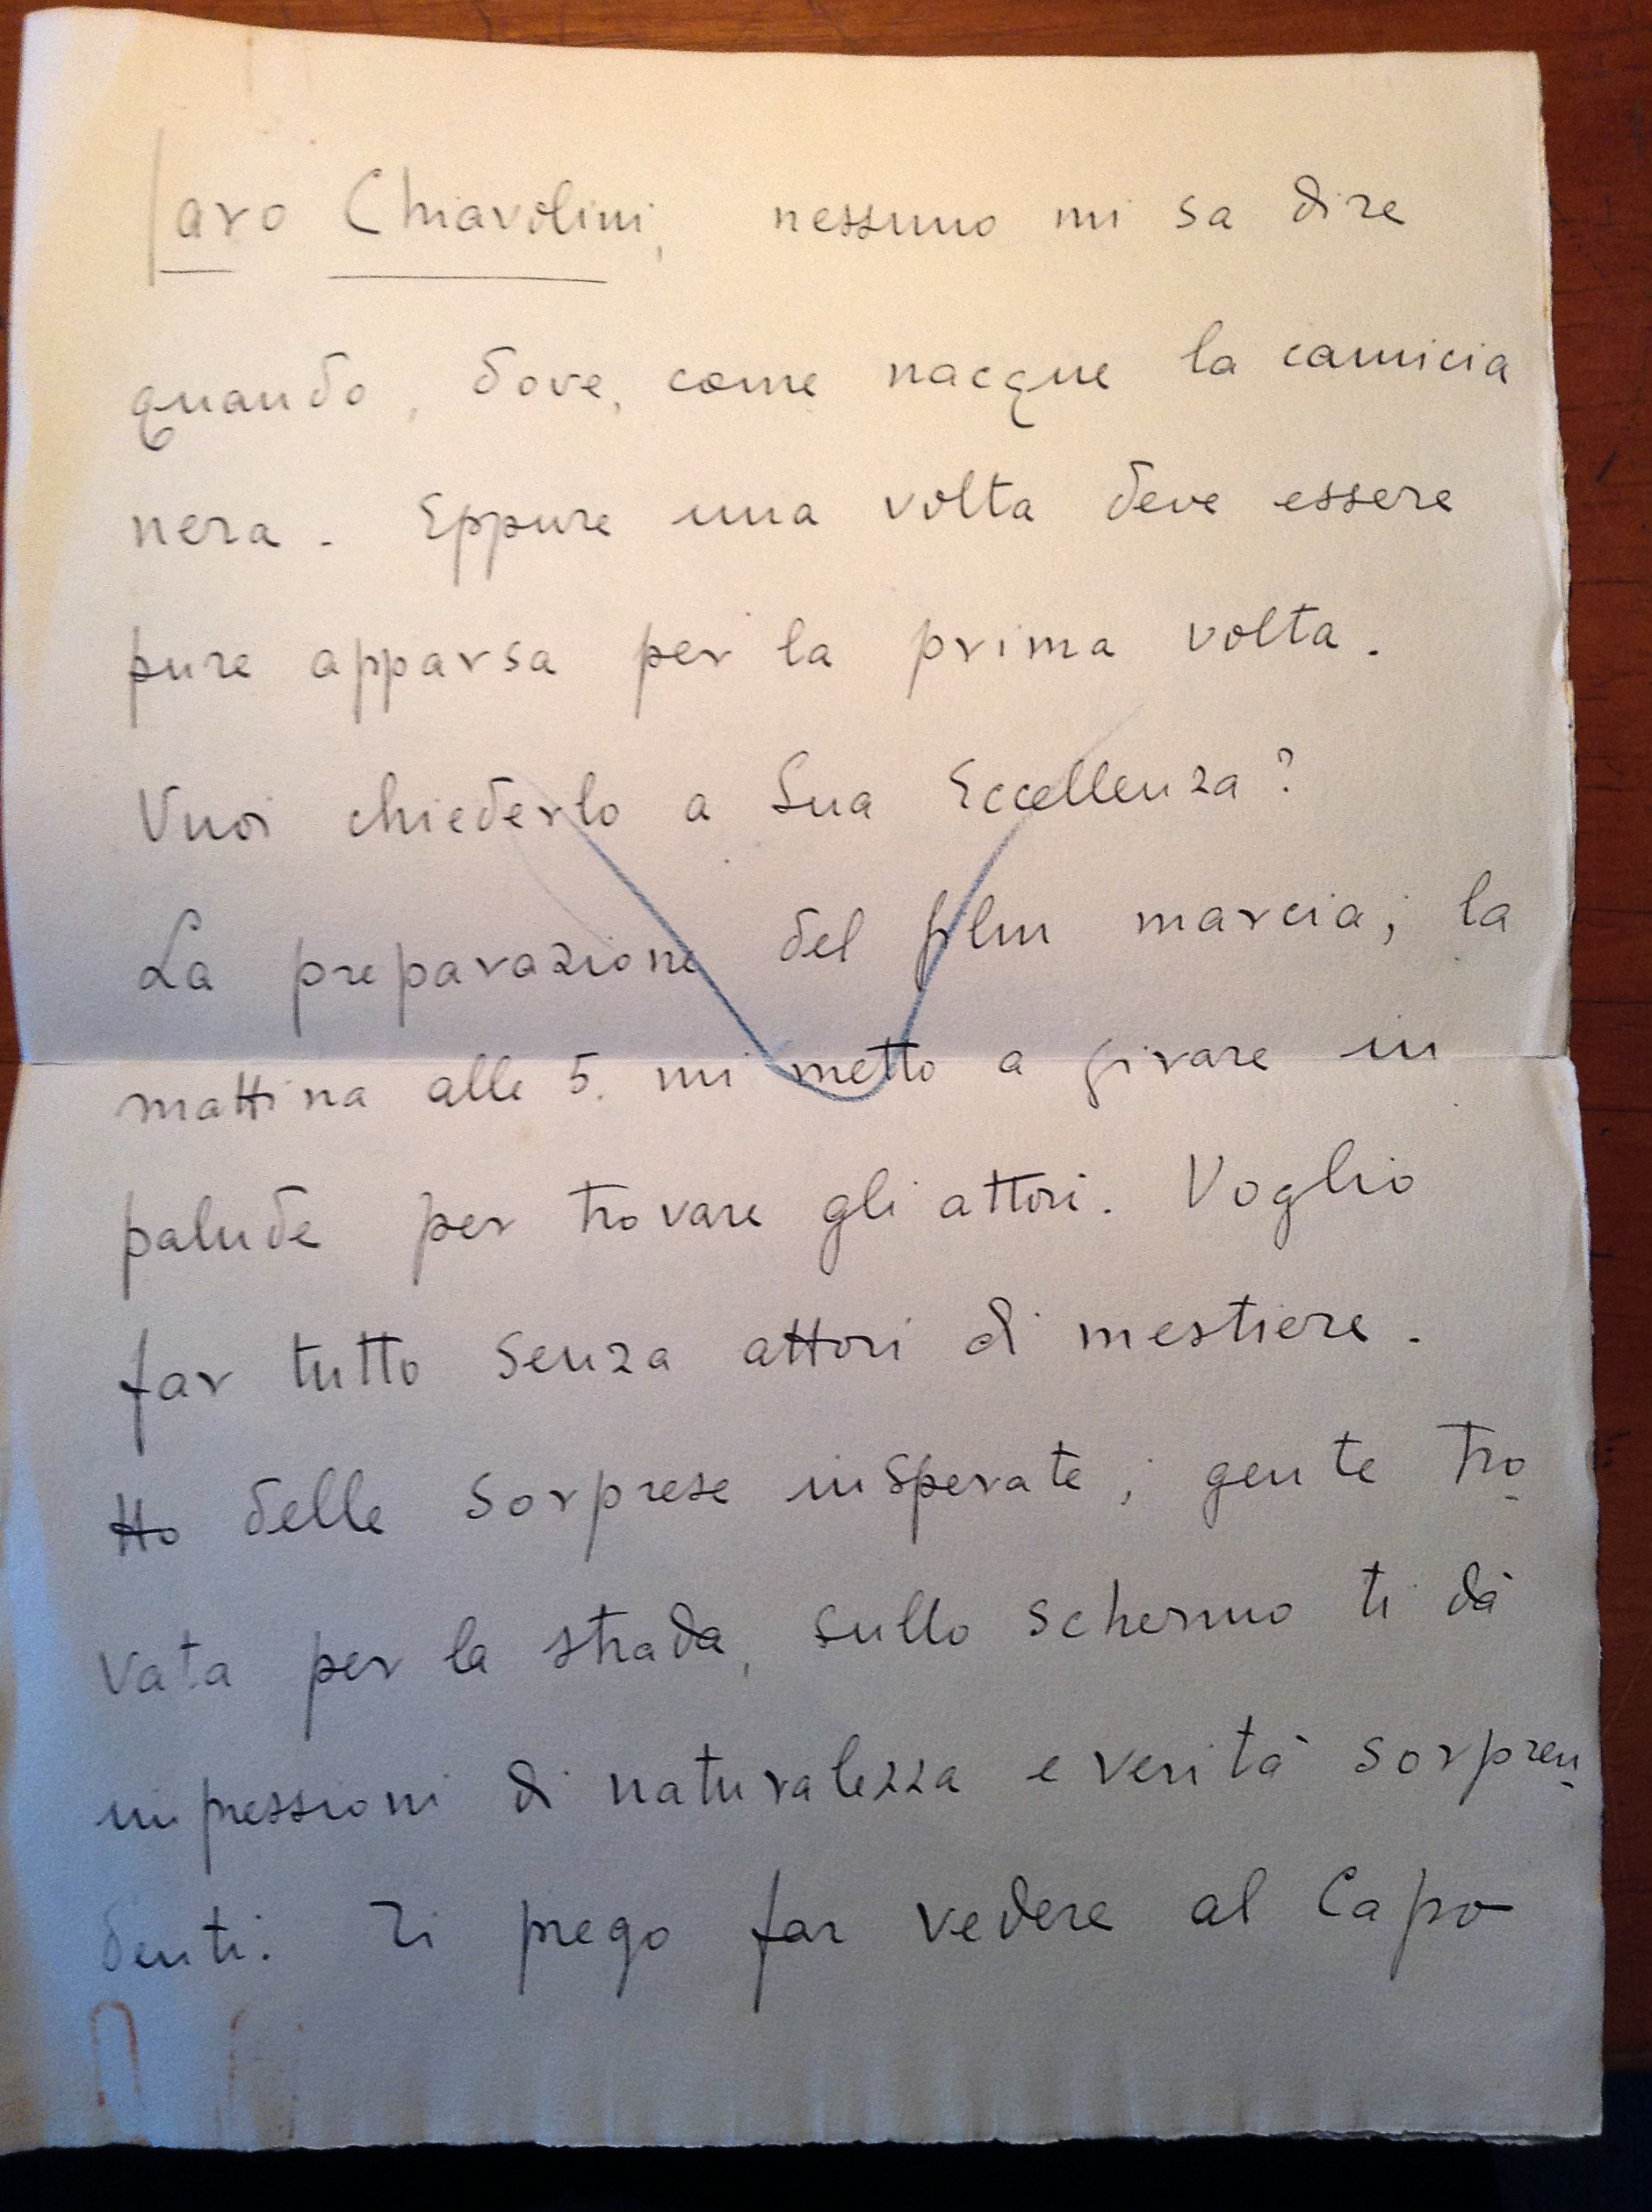 Caro Chiavolini, nessuno mi sa dire
quando, dove, come nacque la camicia
nera. Eppure una volta deve essere
pure apparsa per la prima volta.
Vuoi chiederlo a Sua Eccellenza?
La preparazione del film marcia; la
mattina alle 5. mi metto a girare in
palude per trovare gli attori. Voglio
far tutto senza attori di mestiere.
Ho delle sorprese insperate; gente tro
vata per la strada, sullo schermo ti dà
impressioni di naturalezza e verità sorpren
denti. Ti prego far vedere al Capo